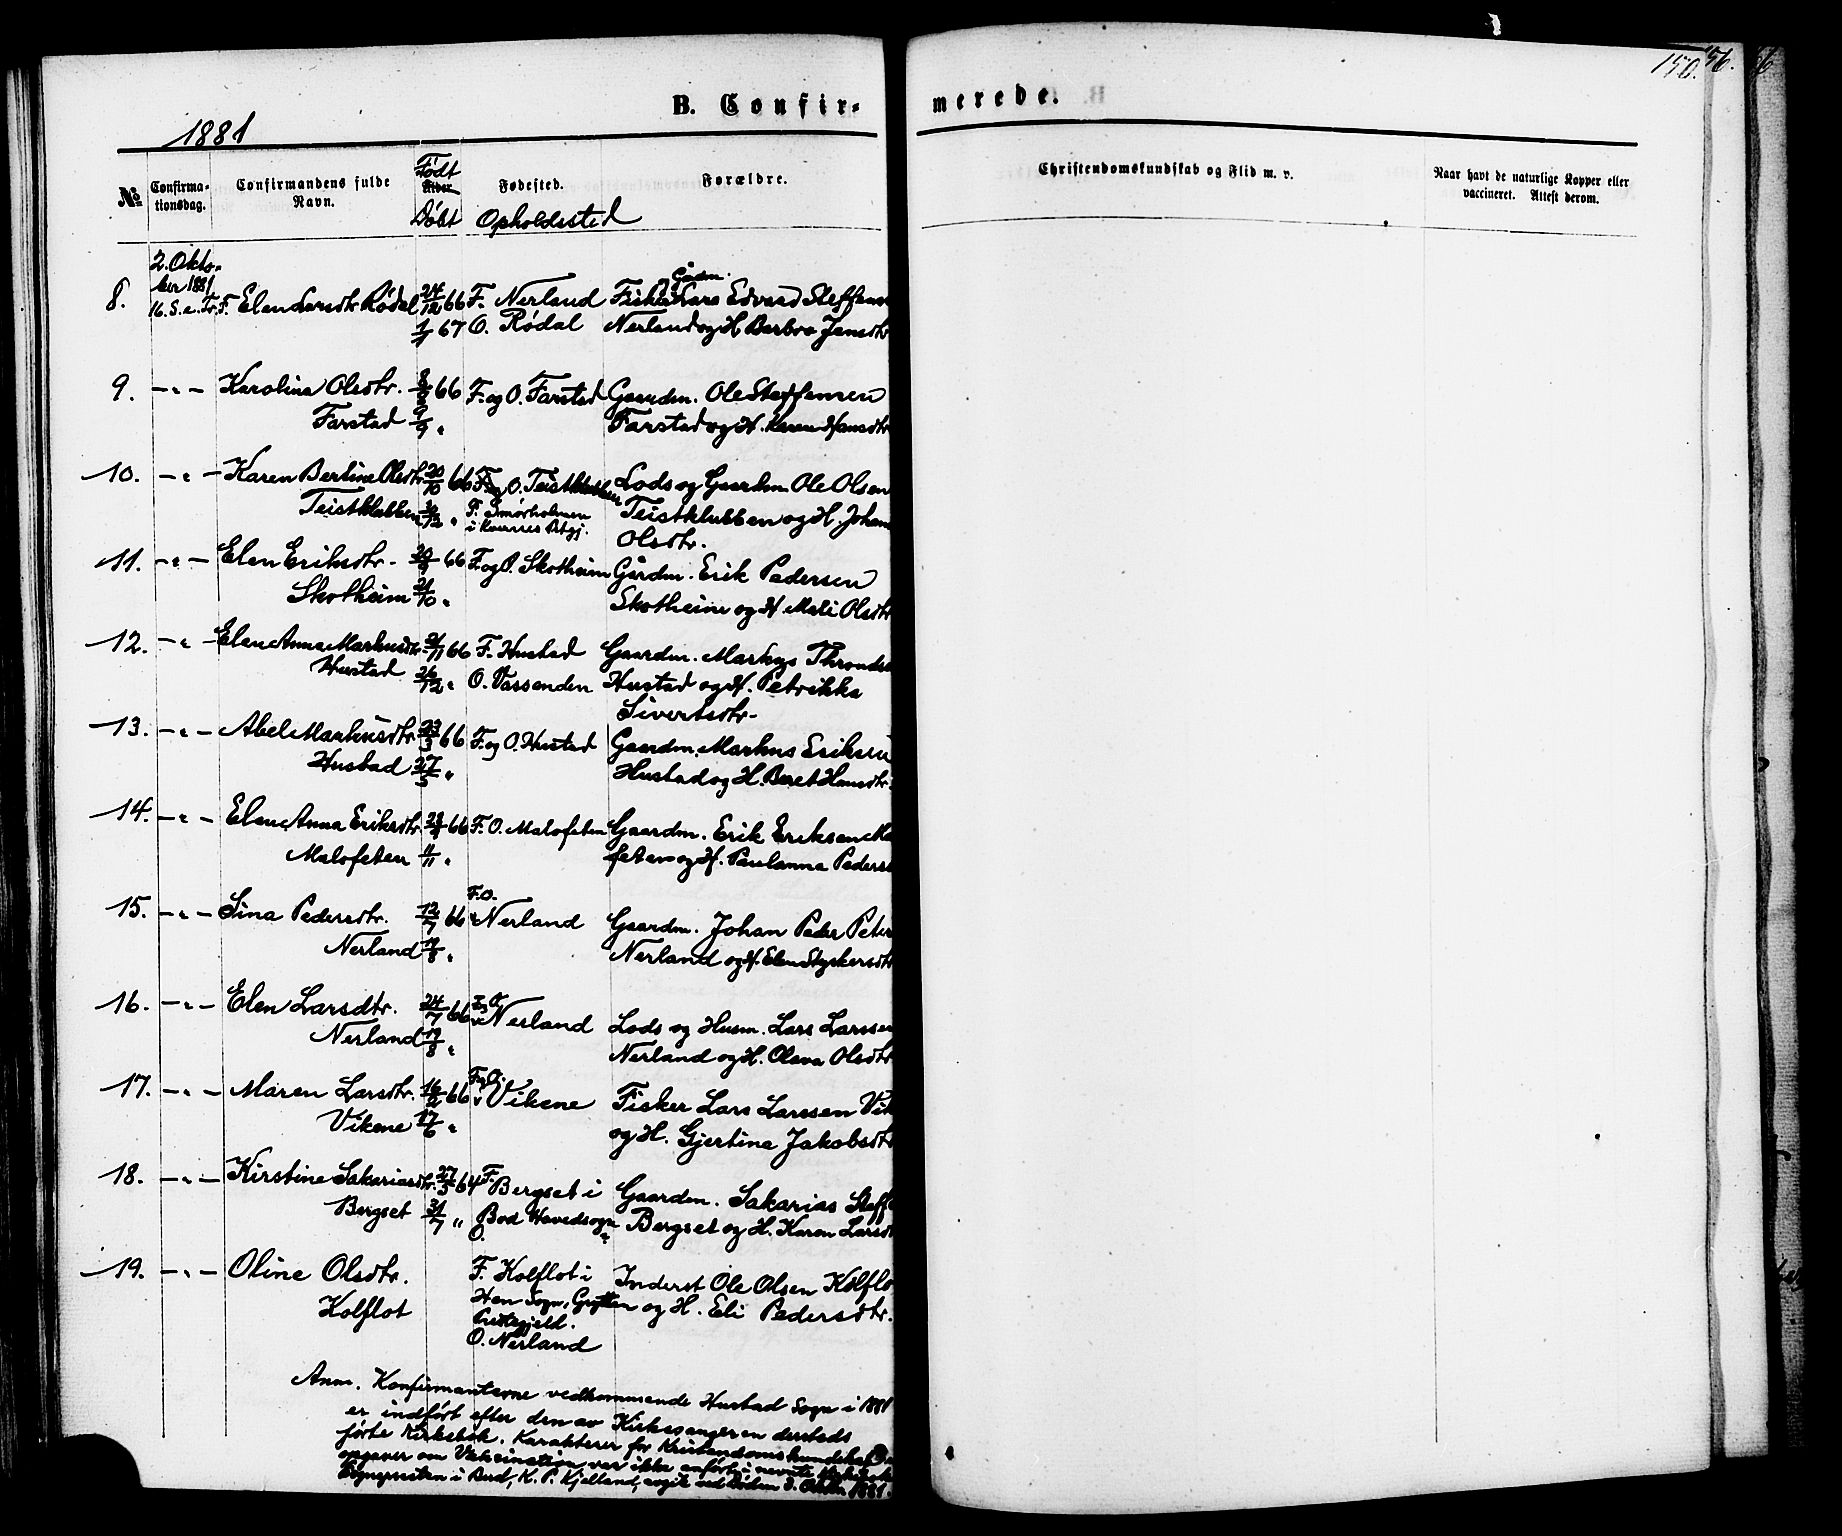 B. Confir-
merede.
150.
56.
1881
№
Confirma-
tionsdag.
Confirmandens fulde
Navn.
Født
Alder
Døbt
Fødested.
Opholdssted
Forældre.
Christendomskundskab og Flid m. v.
Naar havt de naturlige Kopper eller
vaccineret. Attest derom.
2. Okto-
ber 1881
Gårdm.
8. 16. S. e. Tr. F. Elen Larsdtr Rødal 24/12 66 F. Nerland Fisker Lars Edvard Steffens
1/1 67 O. Rødal Nerland og H Berbro Jensdtr
9. -"- Karolina Olsdtr. 66 F. og O. Farstad Gaardm. Ole Steffensen
Farstad 9/9 " Farstad og H. Karen Hansdtr
10. -"- Karen Bertine Olsdtr 20/10 66 F. og O. Teistklubben Lods og Gaardm Ole Olsen
Teistklubben " F. Smørholmen Teistklubben og H. Johan
i Kvernes Prtgj. Olsdtr.
11. -"- Elen Eriksdtr. 66 F. og O. Skotheim Gårdm. Erik Pedersen
Skotheim " Skotheim og H Mali Olsdtr
12. -"- Elen Anna Markusdtr 66 F. Hustad Gaardm. Markus Throndse
Hustad 26/12 " O. Vassenden Hustad og H. Petrikka
Sivertsdtr-
13. -"- Abel Markusdtr. 23/3 66 F. og O. Hustad Gaardm. Markus Eriksen
Hustad 27/5 " Hustad og H. Beret Hansdtr.
14. -"- Elen Anna Eriksdtr. 66 F. O. Malofeten Gaardm. Erik Eriksen Ma
Malofeten 11/11 " feten og H. Paulanna Peders
F. O.
15. -"- Sina Pedersdtr. 12/7 66 Nerland Gaardm. Johan Peder Peter
Nerland 19/8 " Nerland og H. Elen Styrkersdtr
F. O.
16. -"- Elen Larsdtr. 24/7 66 Nerland Lods og Husm. Lars Larssen
Nerland 19/8 " Nerland og H. Olava Olsdtr
F. O.
17. -"- Maren Larsdtr. 16/2 66 Vikene Fisker Lars Larssen Vik
Vikene 17/6 " og H. Gjertina Jakobsdtr
18. -"- Kirstine Sakariasdtr. 27/3 64 F. Bergset i Gaardm. Sakarias Steff
Bergset 31/7 " Bod Hovedsogn Bergset og H. Karen Larsd
O. "
19. -"- Oline Olsdtr. F. Kolflot i Inderst Ole Olsen Kolflo
Kolflot Hen Sogn, Grytten og H. Eli Pedersdtr.
Prestegjeld.
O. Nerland
Anm. Konfirmanterne vedkommende Hustad Sogn i 1881
er indført efter den av Kirkesangeren dersteds
førte Kirkebok. Karakterer for Kristendomskundskab og
opgaver om Vaksination var ikke anført i nevnte Kirkebok
Sognepresten i Bud, K. P. Kjelland, avgik ved Døden 3. Oktbr 1881.